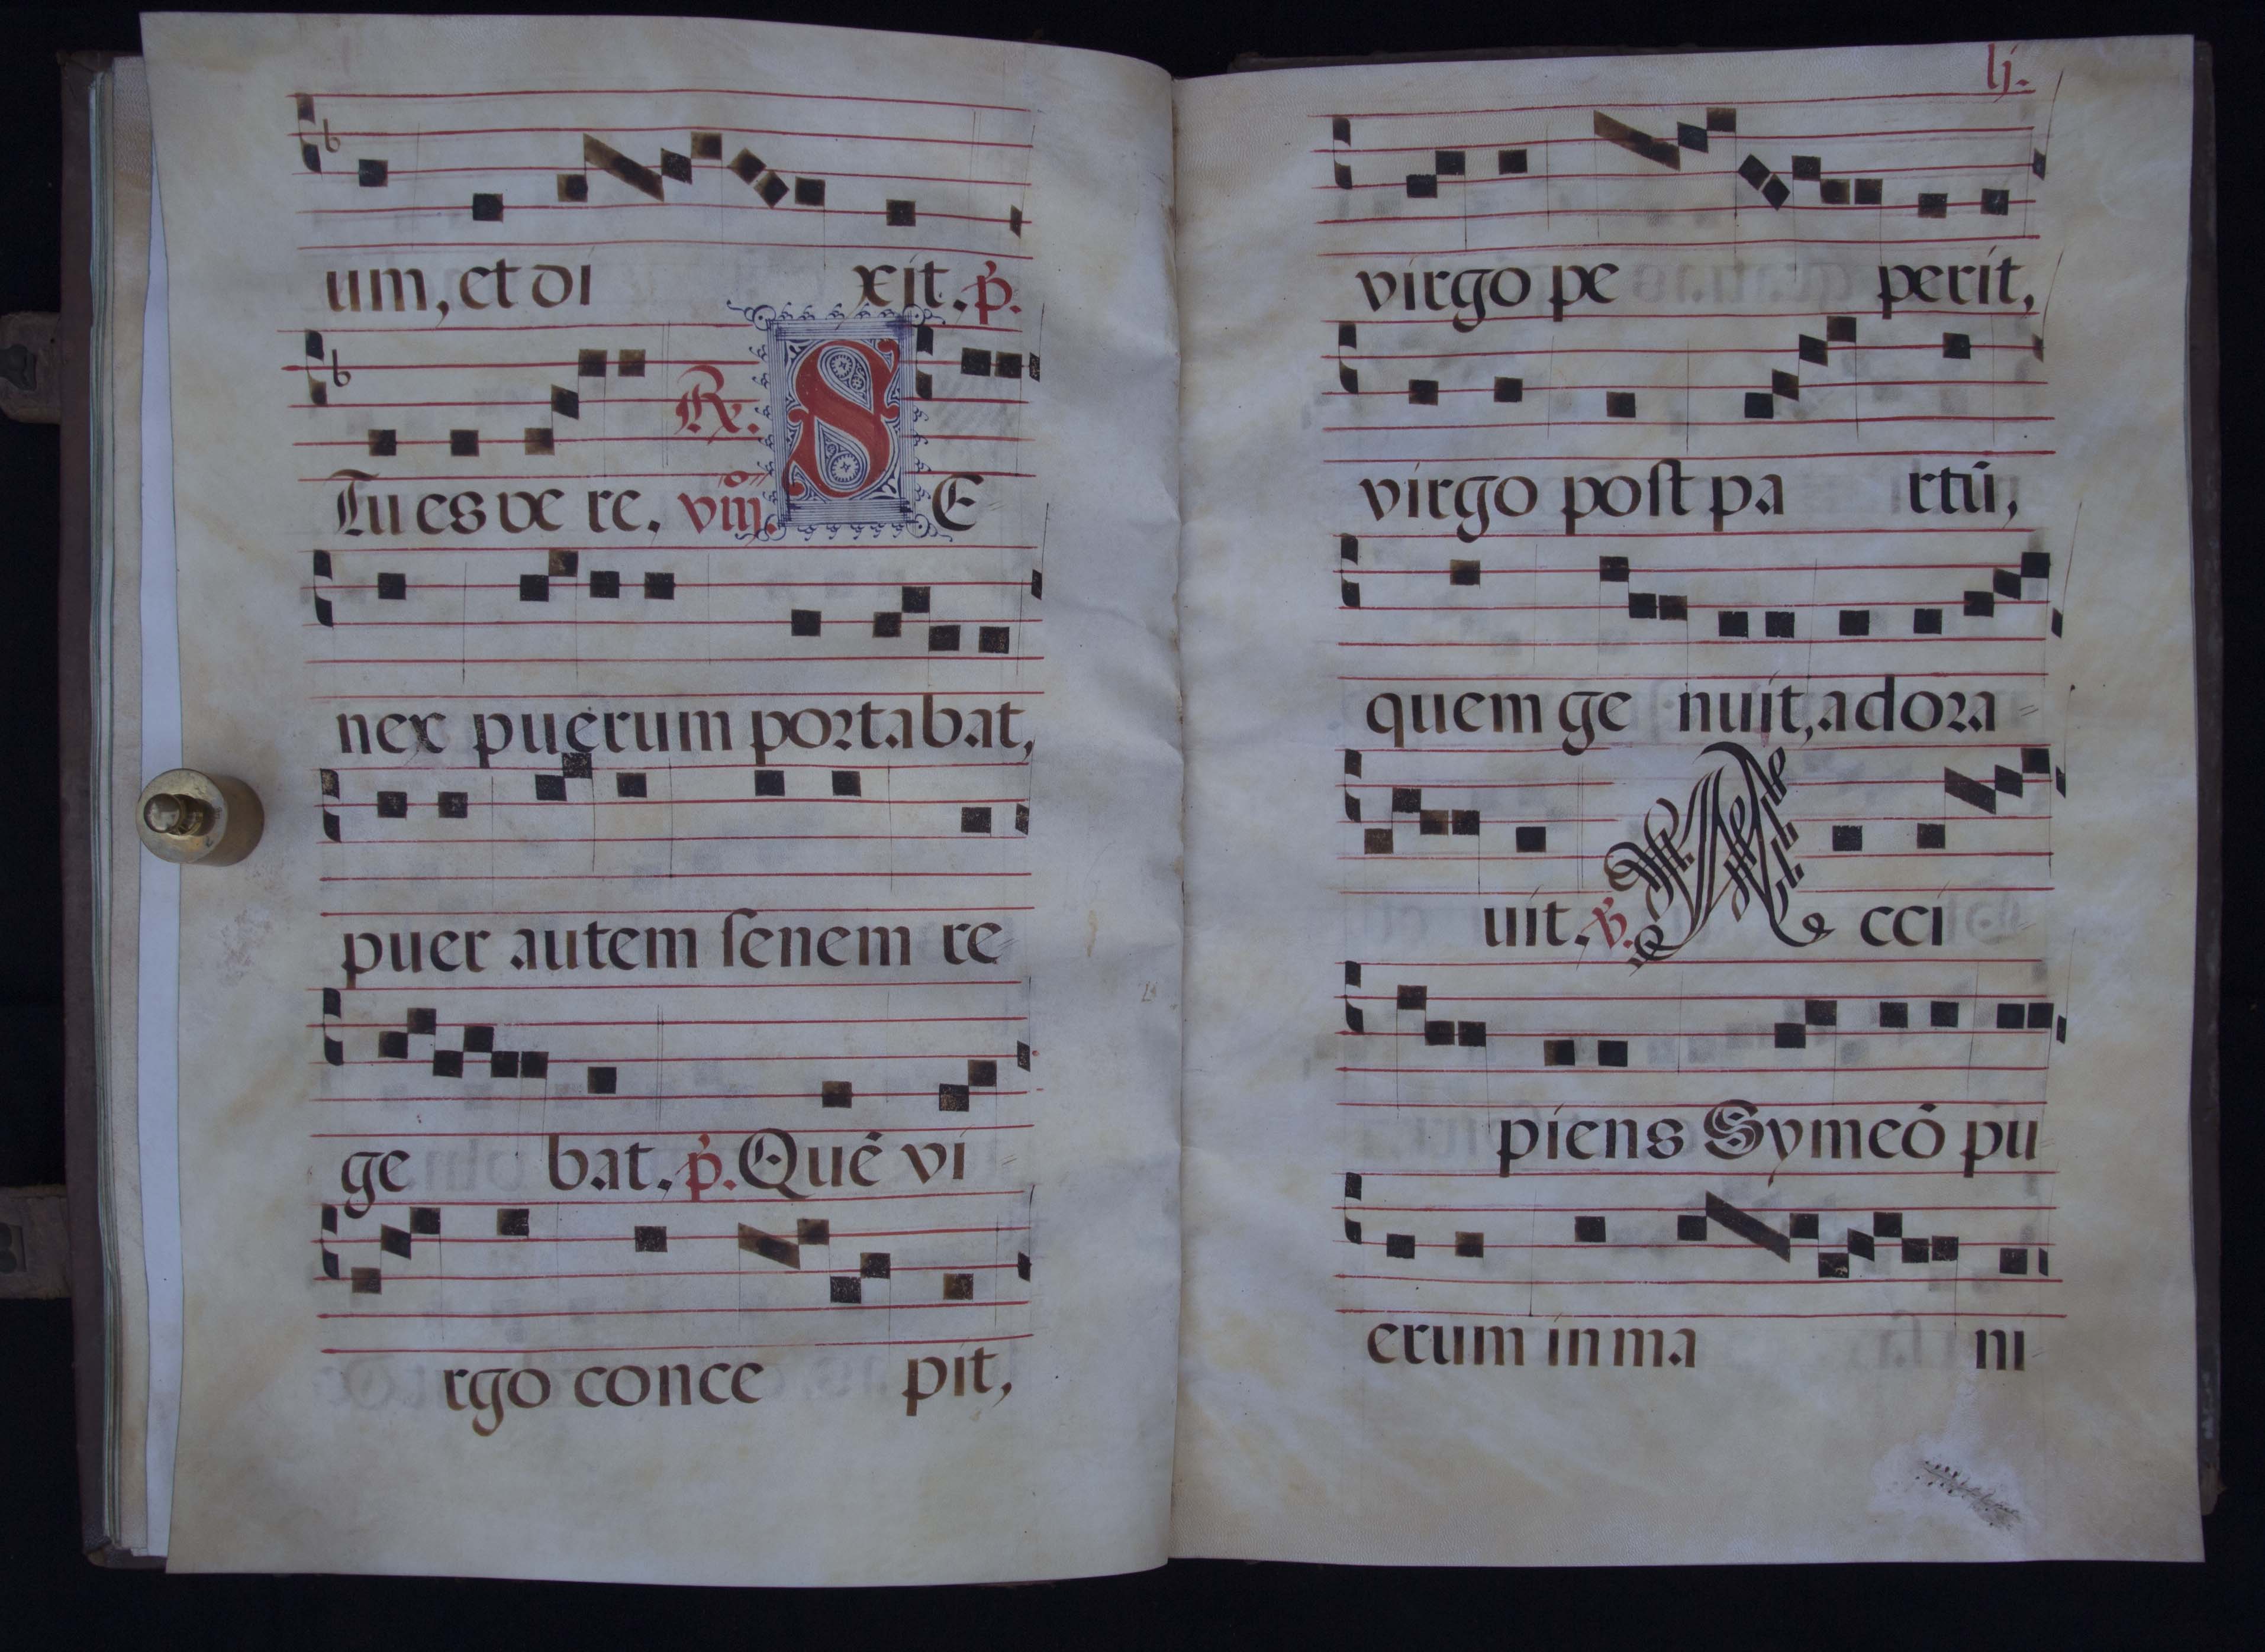 um, et di xit. p̃.
Tu es ve re. ℟. viij.º S E
nex puerum portabat,
puer autem ſenem re
ge bat. p̃. Quē vi
rgo conce pit,
lj.
virgo pe perit,
virgo poſt pa rtū,
quem ge nuit, adora
uit. ℣. A cci
piens Symeō pu
erum in ma ni